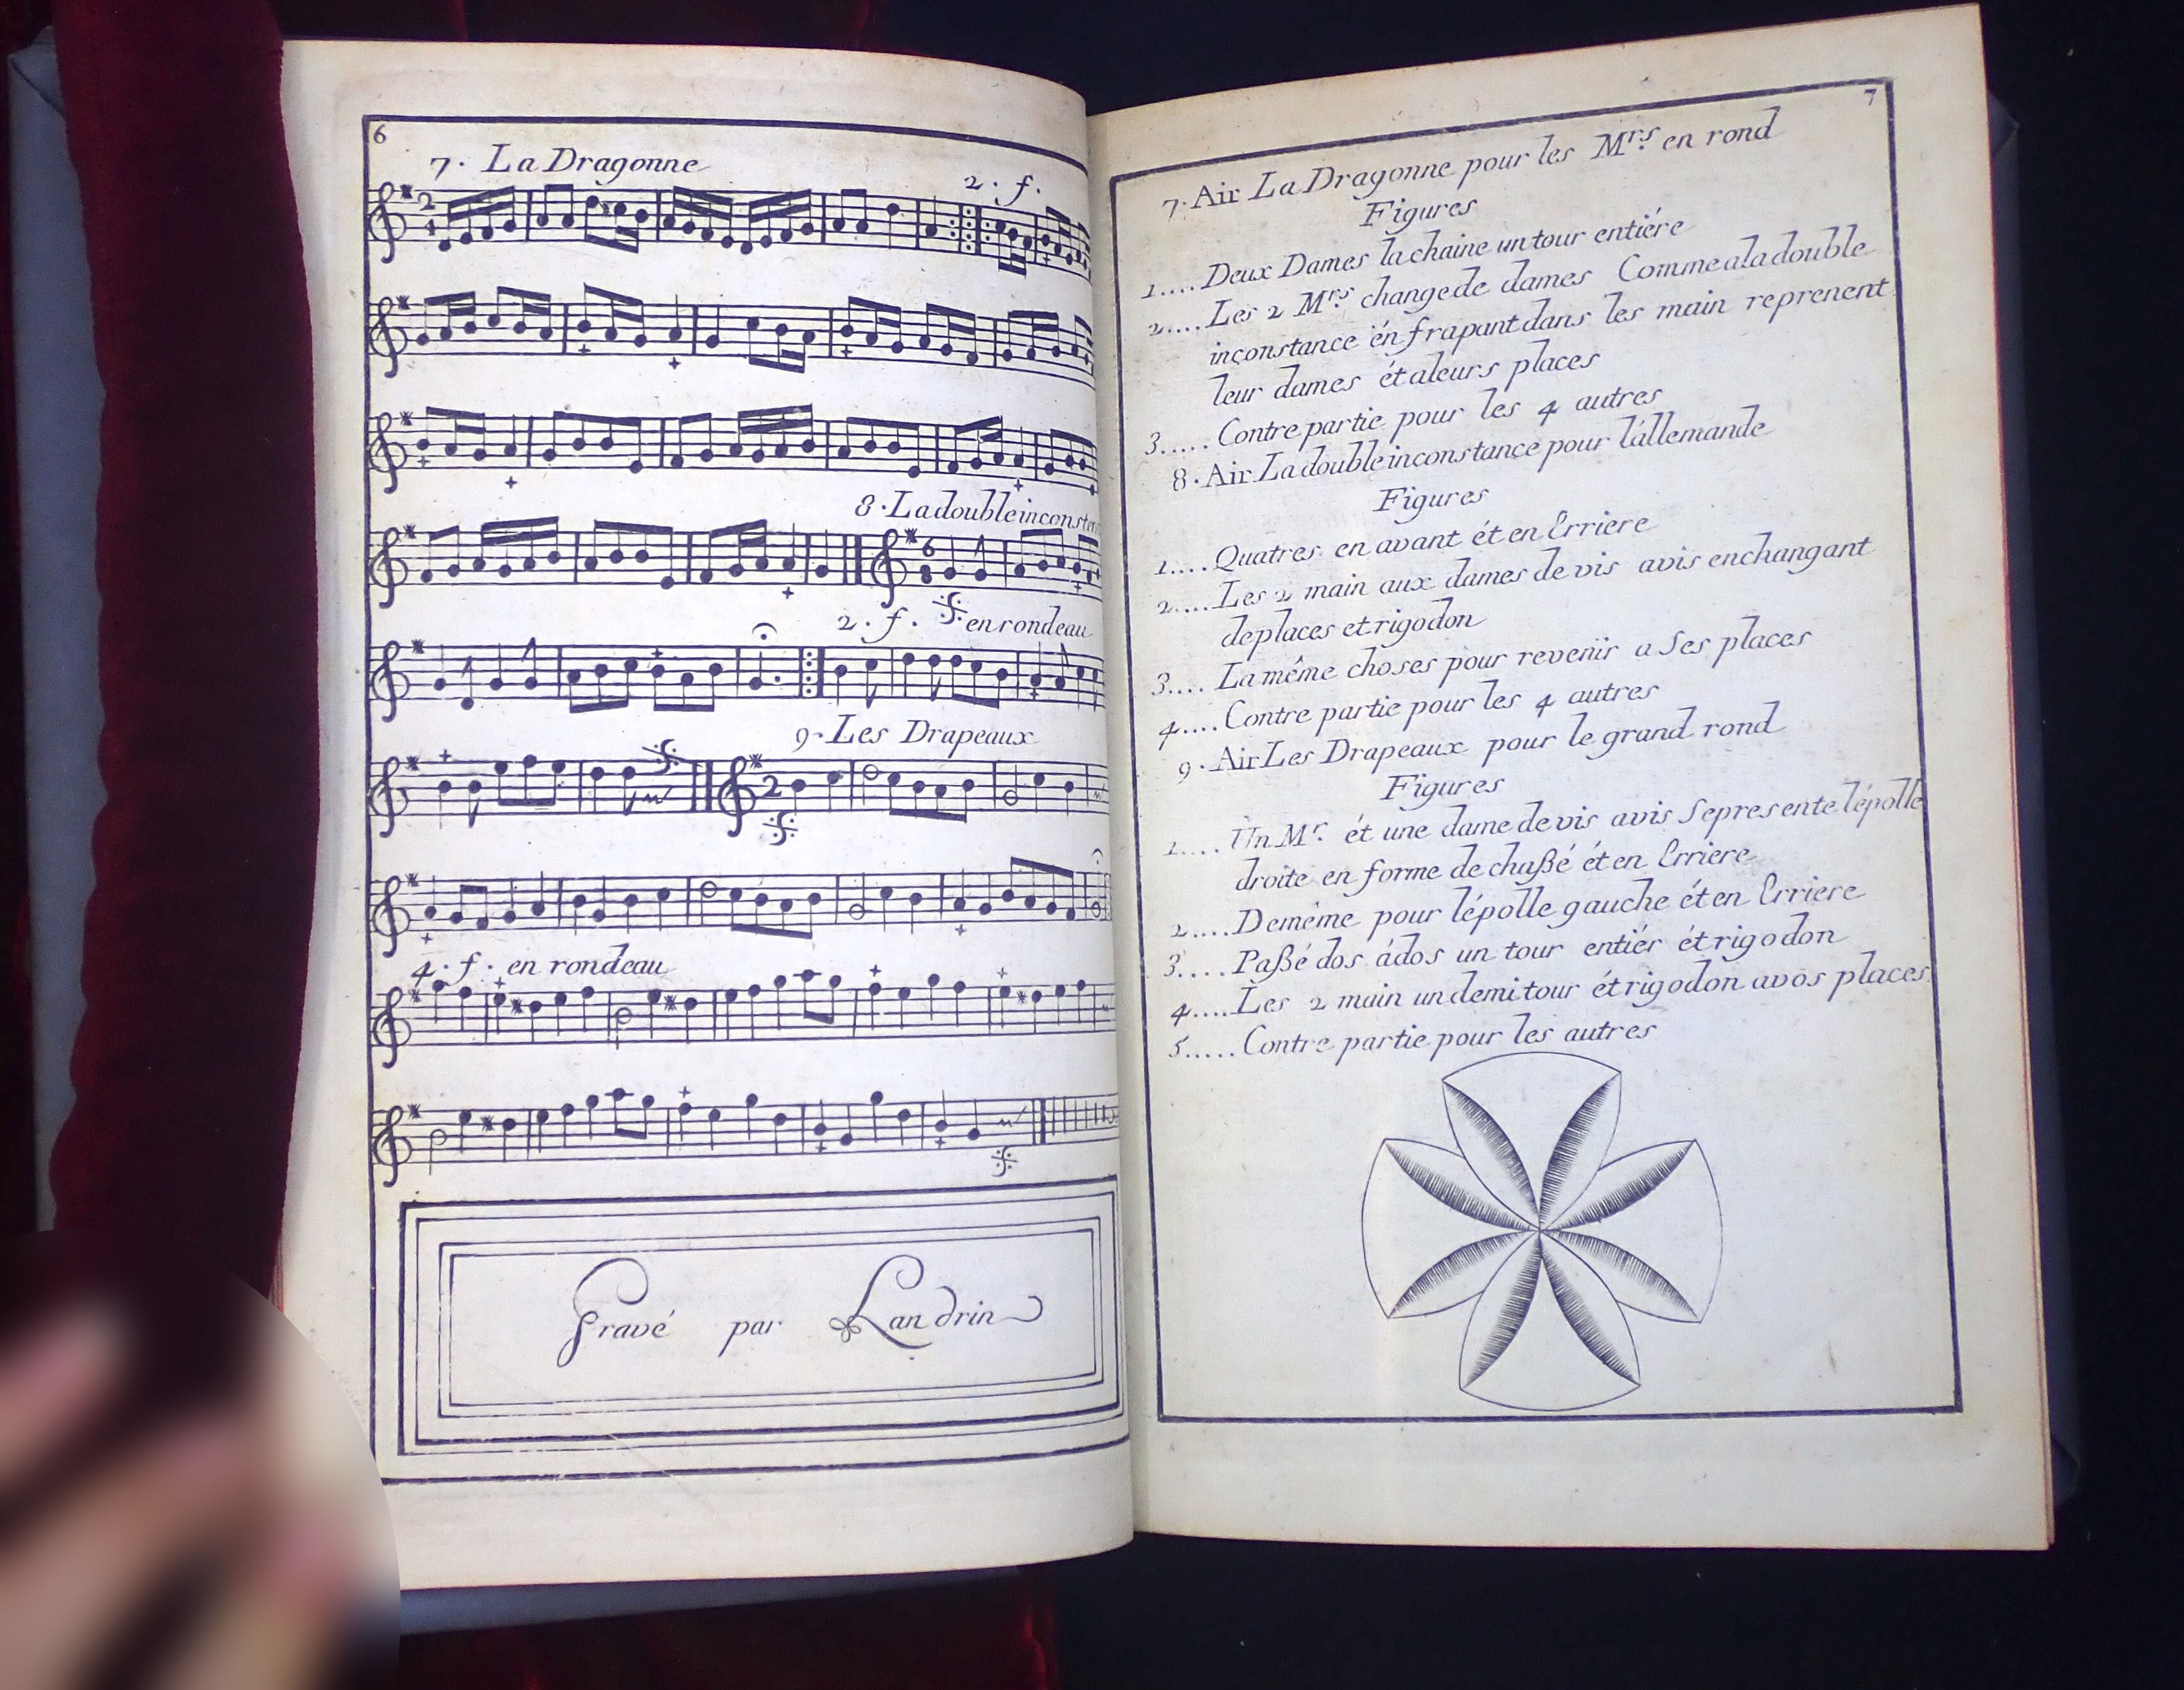 6
7. La Dragonne
2. f.
8. La double inconst
2. f. en rondeau
9. Les Drapeaux
4. f. en rondeau
Gravé par Landrin
7
7. Air La Dragonne pour les Mrs. en rond
Figures
1.... Deux Dames la chaine un tour entiére
2.... Les 2 Mrs. change de dames Comme a la double
inconstance én frapant dans les main reprenent
leur dames ét a leurs places
3..... Contre partie pour les 4 autres
8. Air La double inconstance pour l'állemande
Figures
1.... Quatres en avant ét en Erriere
2.... Les 2 main aux dames de vis avis en changant
de places et rigodon
3.... La même choses pour revenir a Ses places
4.... Contre partie pour les 4 autres
9. Air Les Drapeaux pour le grand rond
Figures
1.... Un Mr. ét une dame de vis avis Se presente l'épolle
droite en forme de chaßé ét en Erriere
2.... De même pour l'épolle gauche ét en Erriere
3.... Paßé dos ádos un tour entiér ét rigodon
4.... Les 2 main un demi tour ét rigodon a vos places
5..... Contre partie pour les autres